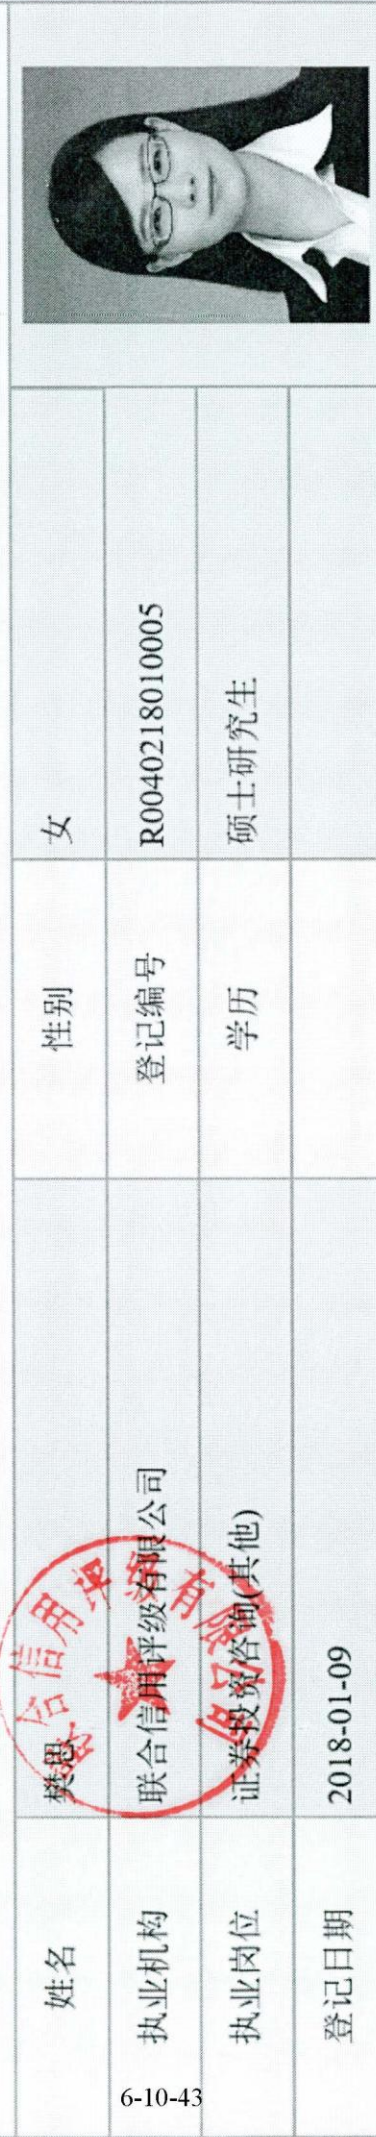 姓名 樊思 性别 女
执业机构 联合信用评级有限公司 登记编号 R0040218010005
执业岗位 证券投资咨询(其他) 学历 硕士研究生
登记日期 2018-01-09
联合信用评级有限公司
6-10-43